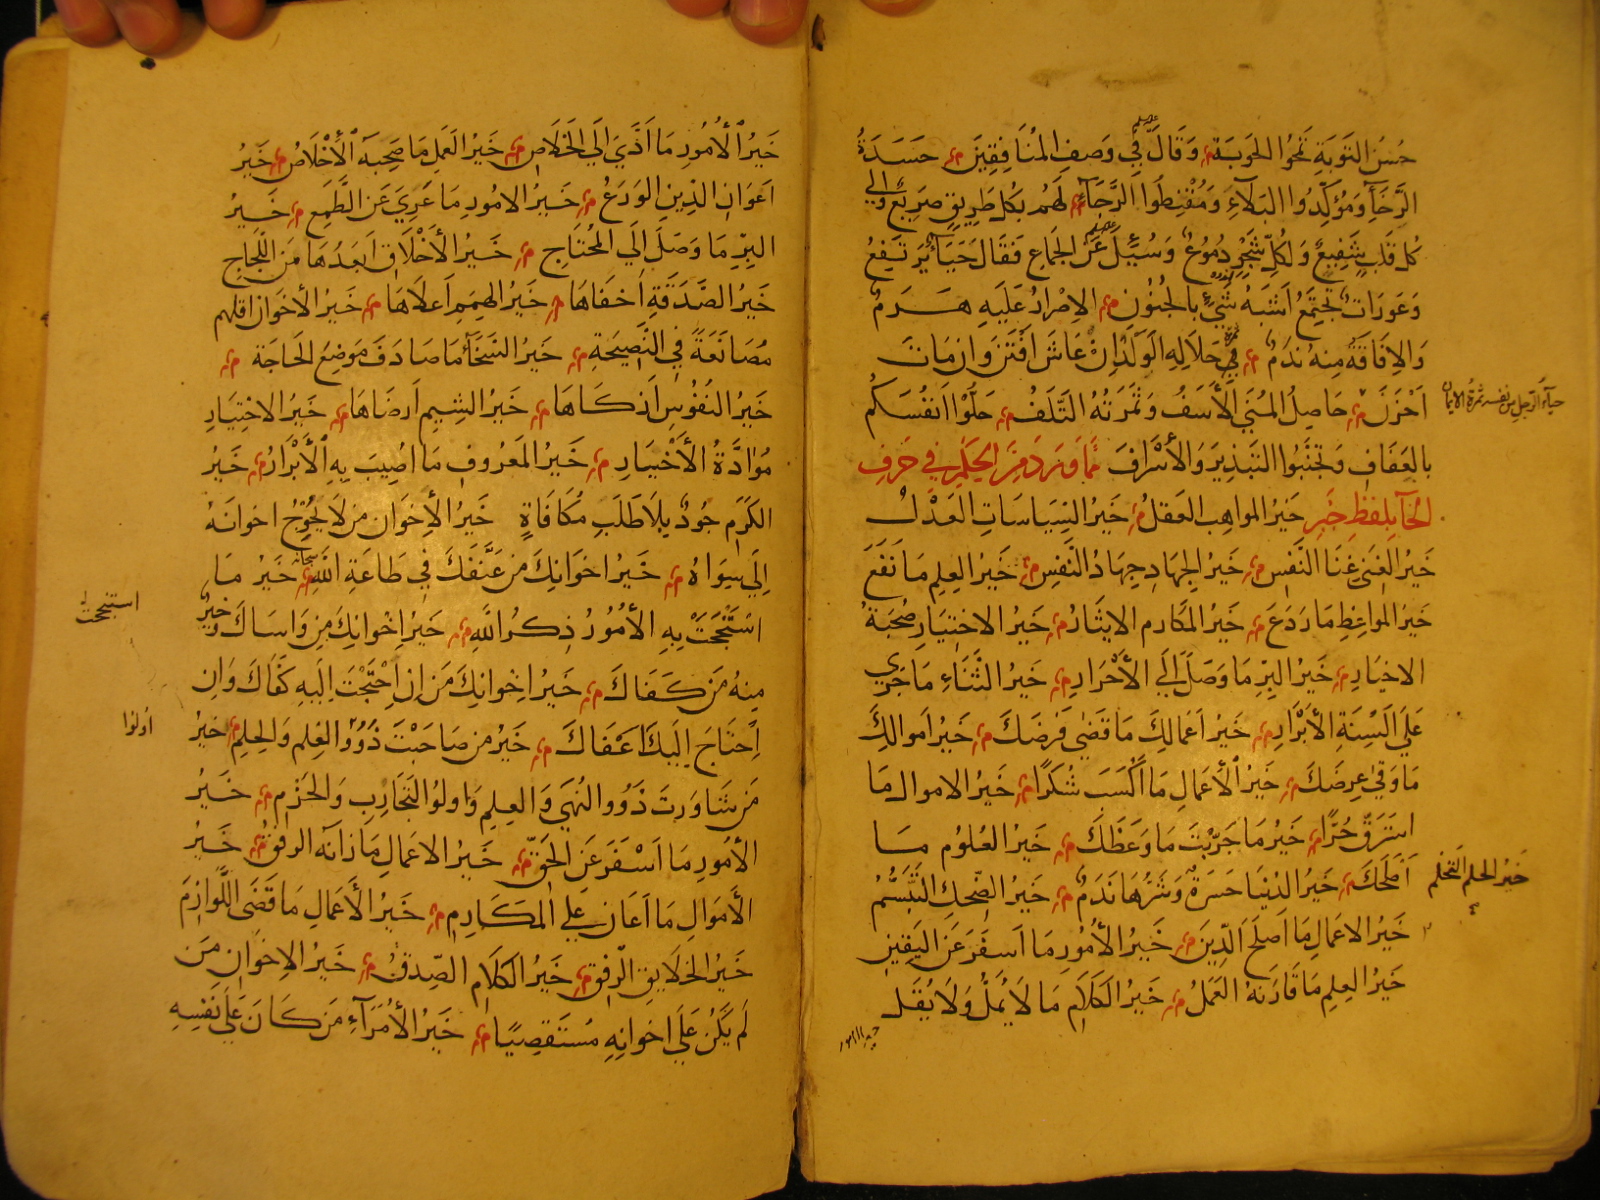 حُسنُ التَوبَةِ تَمحُوا الحَوبَةَ وَقَالَ فِي وَصفِ المُنَافِقِينَ حَسَدَةُ
الرَّخَآءِ وَمُؤكِّدُوا البَلَآءِ وَمُقْنِطُوا الرَّجَآءِ لَهُم بِكُلِ طَرِيقٍ صَرِيعٌ وَالِي
كُلِ قَلبٍ شَفِيعٌ وَلِكُلِّ شَجْوٍ دُمُوعٌ وَسُئِلَ عَنِ الجِمَاعِ فَقَالَ حَيَآءٌ يَرتَفِعُ
وَعَورَاتٌ تَجتَمِعُ اَشبَهُ شَيْءٍ بِالجُنُونِ الاِصرَارُ عَلَيهِ هَرَمٌ
وَالاِفَاقَةُ مِنهُ نَدَمٌ ثمرة حَلَالِهِ الوَلَدُ اِنْ عَاشَ اَفْتَنَ وَاِن مَاتَ
اَحْزَنَ حَاصِلُ المُنَي الأَسَفُ وَثَمَرَتُهُ التَّلَفُ حَلُّوْا اَنفُسَكُم
حياء الرجل من نفسه ثمرة الايمان
بِالعَفَافِ وَتَجَنَّبُوا التَبذِيرَ وَالأَسْرَافَ مِمَّا وَرَدَ مِنَ الحِكَمِ فِي حَرفِ
الخَآءِ بِلَفظِ خَيرِ خَيرُ المواهِبِ العَقلُ خَيرُ السِّيَاسَاتِ العَدْلُ
خَيرُ الغِنَي غِنَا النَّفسِ خَيرُ الجِهَادِ جِهَادُ النَّفسِ خَيرُ العِلمِ مَا نَفَعَ
خَيرُ المَوَاعِظِ مَا رَدَعَ خَيرُ المَكَارِم الايثَارُ خَيرُ الاختِيَارِ صُحبَةُ
الاخيَارِ خَيرُ البِرِّ مَا وَصَلَ اِلَي الأَحْرَارِ خَيرُ الثَّنَاءِ مَا جَرَي
عَلَي اَلسِنَةِ الأَبْرَارِ خَيرُ اَعمَالِكَ مَا قَضَى فَرضَكَ خَيرُ اَموالِكَ
مَا وَقي عِرضَكَ خَيرُ الأَعمَالِ مَا اَكْسَبَ شُكرًا خَيرُ الاموالِ مَا
استَرَقَّ حُرًّا خَيرُ مَا جَرَّبتَ مَا وَعَظَكَ خَيرُ العُلُومِ مَا
اَصْلَحَكَ خَيرُ الدُنيَا حَسرَةٌ وَشَرُّهَا نَدَمٌ خَيرُ الضِّحكِ التَبَسُّمُ
خَيرُ الحلمِ التَحَلُّم
خَيرُ الاعمَالِ مَا اَصلَحَ الدِّينَ خَيرُ الأُمُورِ مَا اَسفَرَ عَنِ اليَقِينِ
خَيرُ العِلمِ مَا قَارَنَهُ العَمَلُ خَيرُ الكَلَامِ مَا لَا يُمَلُّ وَلَا يُقَلُ
خير الامور
خَيرُ الأُمُورِ مَا اَدَّيَ اِلَي الخَلَاصِ خَيرُ العَمَلِ مَا صَحِبهُ الأِخْلَاصُ خَيرُ
اَعوَانِ الدِّينِ الوَرَعُ خَيرُ الامُورِ مَا عَرِيَ عَنِ الطَّمَعِ خَيرُ
البِرِّ مَا وَصَلَ اِلَي المُحتَاجِ خَيرُ الأَخْلَاقِ اَبعَدُهَا مَنِ اللَّجَاجِ
خَيرُ الصَّدَقَةِ اَخفَاهَا خَيرُ الهِمَمِ اَعلَاهَا خَيرُ الأخوَانِ اقلهم
مُصَانَعَةً فِي النَّصِيحَةِ خَيرُ السَّخَآءِ مَا صَادَفَ مَوضِعَ الحَاجَة
خَيرُ النفُوسِ اَزكَاهَا خَيرُ الشِيَمِ اَرضَاهَا خَيرُ الاختِيَارِ
مُوَادَّةُ الأَخْيَارِ خَيرُ المَعرُوفِ مَا اُصِيبَ بِهِ الأَبْرَارُ خَيرُ
الكَرَمِ جُودٌ بِلَا طَلَبِ مُكَافَاةٍ خَيرُ الأِخوَانِ مَن لَا يُحوِجُ اخوَانَهُ
اِلَي سِوَاهُ خَيرُ اخوَانِكَ مَن عَنَّفَكَ فِي طَاعَةِ اللهِ سبحانه خَيرُ مَا
استنجحت
اسْتَنْجَحْتَ بِهِ الأُمُورُ ذِكرُ اللَّهِ خَيرُ اِخْوانِكَ مَن وَاسَاكَ وَخيرٌ
مِنهُ مَن كَفَاكَ خَيرُ اِخوَانِكَ مَن اِنِ اِحْتَجْتَ اِلَيهِ كَفَاكَ وَاِنِ
اولوا
اِحتَاجَ اِلَيكَ اَعفَاكَ خَيرُ مَن صَاحَبْتَ ذَوُو العِلمِ وَالحِلمِ خَيرُ
مَن شَاوَرتَ ذَوُوا النُهَي وَالعِلمِ وَاولُوا التَجَارِبِ وَالحَزمِ خَيرُ
الأمُورِ مَا اَسْفَرَ عَنِ الحَقّ خَيرُ الاعمَالِ مَا زَانَه الرفقُ خَيرُ
الأَموَالِ مَا اَعَانَ عَلي المَكَارِمِ خَيرُ الأَعمَالِ مَا قَضَى اللَّوازِمَ
خَيرُ الخَلَايقِ الرِّفقُ خَيرُ الكَلَامِ الصِّدقُ خَيرُ الاِخوَانِ مَن
لَم يَكُن عَلَي اخوَانِهِ مُستَقصِيًا خَيرُ الأُمَرَآءِ مَن كَانَ عَلَي نَفسِهِ